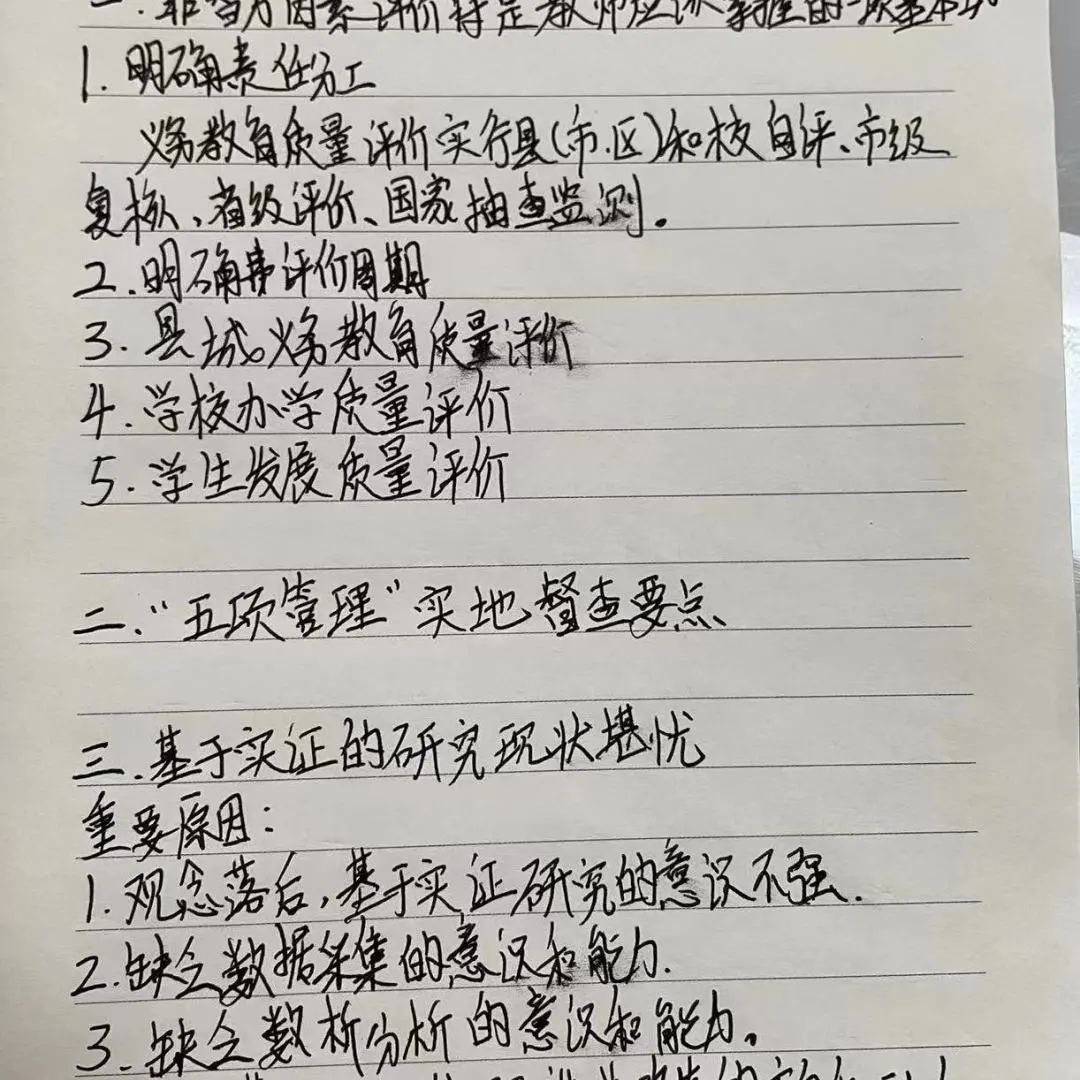 一.非智力因素评价将是教师应该掌握的一项基本功
1.明确责任分工
义务教育质量评价实行县(市.区)和校自评、市级
复核、省级评价、国家抽查监测。
2.明确评价周期
3.县域义务教育质量评价
4.学校办学质量评价
5.学生发展质量评价
二.“五项管理”实地督查要点
三.基于实证的研究现状堪忧
重要原因:
1.观念落后,基于实证研究的意识不强.
2.缺乏数据采集的意识和能力.
3.缺乏数析分析的意识和能力。